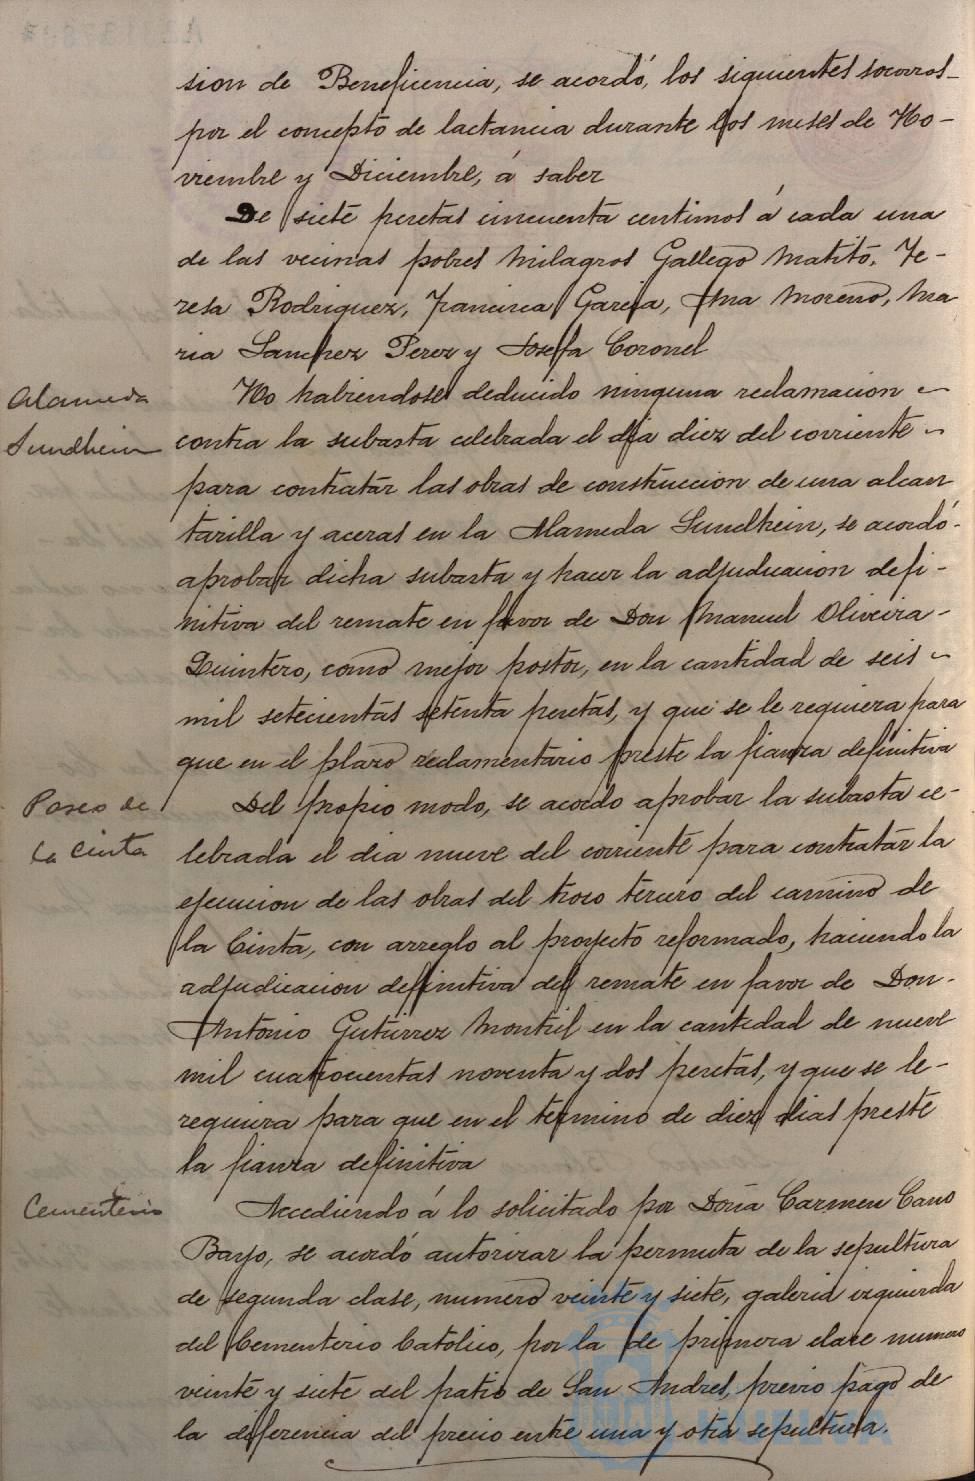 sion de Beneficencia, se acordó, los siguientes socorros-
por el concepto de lactancia durante los meses de No-
viembre y Diciembre, á saber
De siete pesetas cincuenta centimos á cada una
de las vecinas pobres Milagros Gallego Matito, Te-
resa Rodriguez, Francisca Garcia, Ana Moreno, Ma
ria Sanchez Perez y Josefa Coronel
Alameda
Sundheim
No habiendose deducido ninguna reclamacion
contra la subasta celebrada el dia diez del corriente
para contratar las obras de construccion de una alcan
tarilla y aceras en la Alameda Sundhein, se acordó-
aprobar dicha subasta y hacer la adjudicacion defi-
nitiva del remate en favor de Don Manuel Oliveira-
Quintero, como mejor postor, en la cantidad de seis
mil setecientas setenta pesetas, y que se le requiera para
que en el plazo reclamentario preste la fianza definitiva
Paseo de
la Cinta
Del propio modo, se acordo aprobar la subasta ce-
lebrada el dia nueve del corriente para contratar la
ejecucion de las obras del trozo tercero del camino de
la Cinta, con arreglo al proyecto reformado, haciendo la
adjudicacion definitiva del remate en favor de Don-
Antonio Gutierrez Montiel en la cantidad de nueve
mil cuatrocientas noventa y dos pesetas, y que se le-
requiera para que en el termino de diez dias preste
la fianza definitiva
Cementerio
Accediendo á lo solicitado por Doña Carmen Cano
Bayo, se acordó autorizar la permuta de la sepultura
de segunda clase, numero veinte y siete, galeria izquierda
del Cementerio Católico, por la de primera clase numero
veinte y siete del patio de San Andres, previo pago de
la diferencia del precio entre una y otra sepultura.
HUELVA